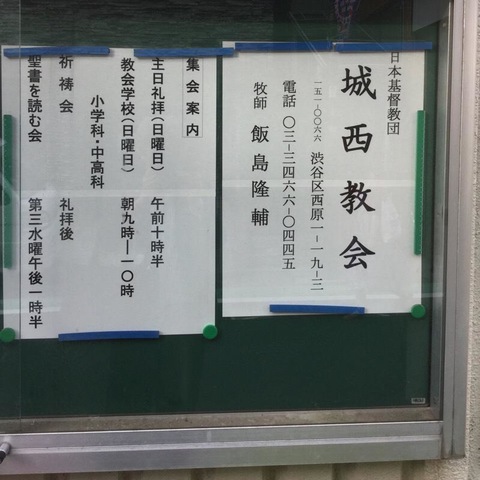 日本基督教団
城西教会
一五一-〇〇六六 渋谷区西原一-一九-三
電話 〇三-三四六六-〇四四五
牧師 飯島隆輔
集会案内
主日礼拝(日曜日) 午前十時半
教会学校(日曜日) 朝九時―一〇時
小学科・中高科
祈祷会 礼拝後
聖書を読む会 第三水曜午後一時半